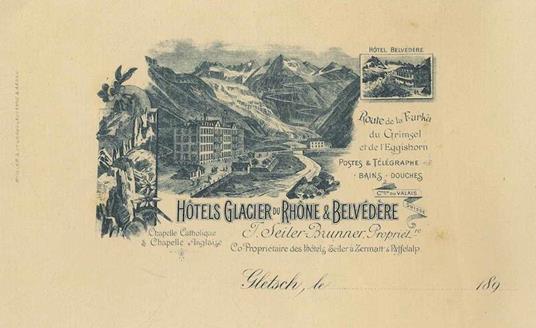 HÔTEL BELVÉDÈRE
Route de la Furka
du Grimsel
et de l'Eggishorn
POSTES & TÉLÉGRAPHE
BAINS - DOUCHES
CTON DU VALAIS
SUISSE
HÔTELS GLACIER DU RHÔNE & BELVÉDÈRE
J. Seiler-Brunner, Propriétre
Chapelle Catholique
& Chapelle Anglaise
Co Propriétaire des hôtels Seiler à Zermatt & Riffelalp
Gletsch, le 189